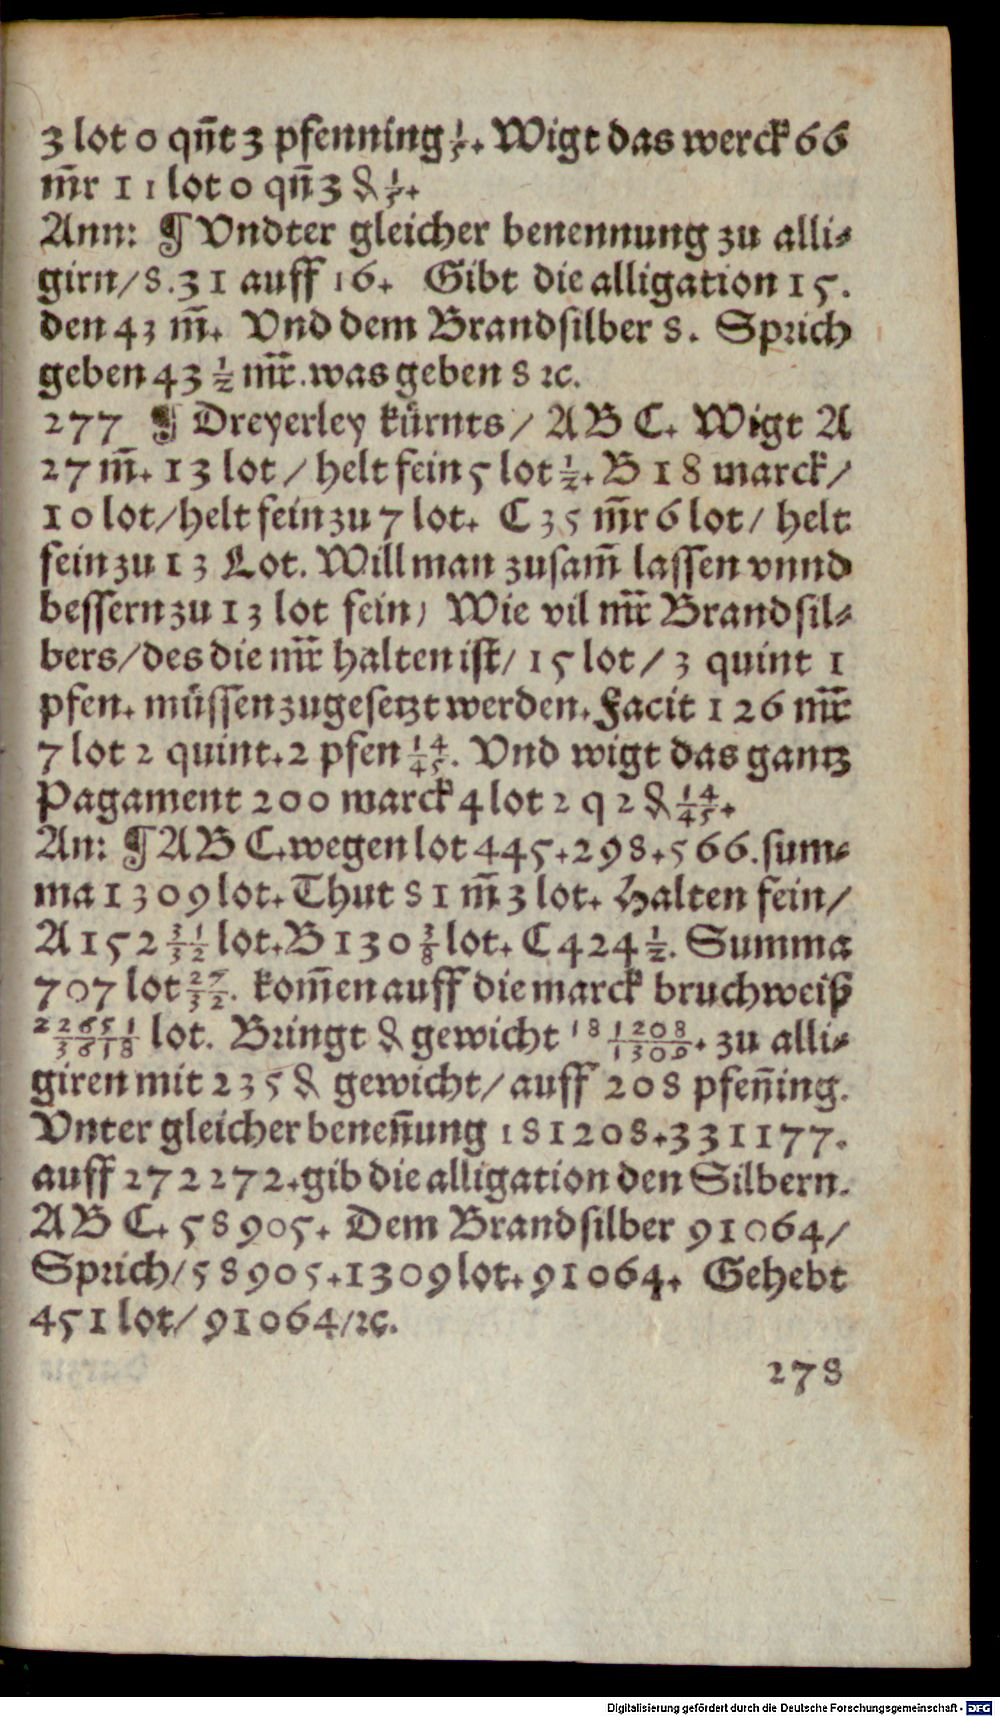 3 lot 0 qñt 3 pfenning 1/5. Wigt das werck 66
m̃r 11 lot 0 qñ 3 ₰ 1/5.
Ann: ¶ Vndter gleicher benennung zu alli⸗
girn/ 8. 31 auff 16. Gibt die alligation 15.
den 43 m̃. Vnd dem Brandsilber 8. Sprich
geben 43 1/2 mr̃. was geben 8 ꝛc.
277 ¶ Dreyerley kürnts / A B C. Wigt A
27 m̃. 13 lot / helt fein 5 lot 1/2. B 18 marck /
10 lot/ helt fein zu 7 lot. C 35 m̃r 6 lot / helt
fein zu 13 Lot. Will man zusam̃ lassen vnnd
bessern zu 13 lot fein / Wie vil mr̃ Brandsil⸗
bers/ des die mr̃ halten ist/ 15 lot / 3 quint 1
pfen. müssen zugesetzt werden. Facit 126 mr̃
7 lot 2 quint. 2 pfen 14/45. Vnd wigt das gantz
Pagament 200 marck 4 lot 2 q 2 ₰ 14/45.
An: ¶ A B C. wegen lot 445. 298. 566. sum⸗
ma 1309 lot. Thut 81 m̃ 3 lot. Halten fein /
A 152 31/32 lot. B 130 3/8 lot. C 424 1/2. Summa
707 lot 27/32. kom̃en auff die marck bruchweiß
22651/2618 lot. Bringt ₰ gewicht 181208/1309. zu alli⸗
giren mit 235 ₰ gewicht/ auff 208 pfen̄ing.
Vnter gleicher beneñung 181208. 331177.
auff 272272. gib die alligation den Silbern.
A B C. 58905. Dem Brandsilber 91064 /
Sprich/ 58905. 1309 lot. 91064. Gehebt
451 lot/ 91064/ ꝛc.
278
Digitalisierung gefördert durch die Deutsche Forschungsgemeinschaft - DFG